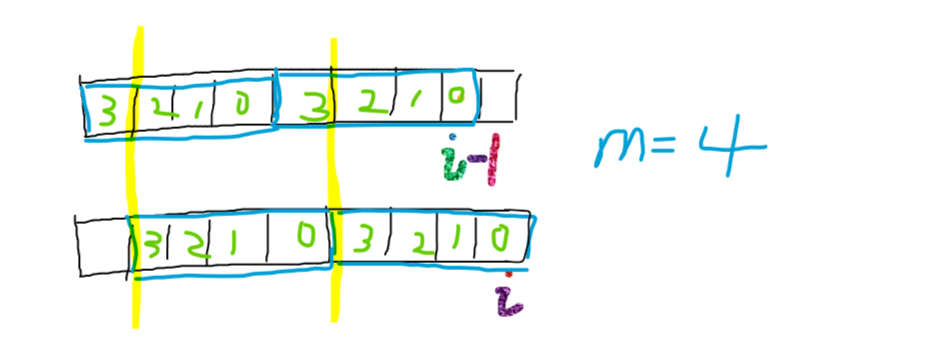 3 2 1 0 3 2 1 0
i-1
m=4
3 2 1 0 3 2 1 0
i